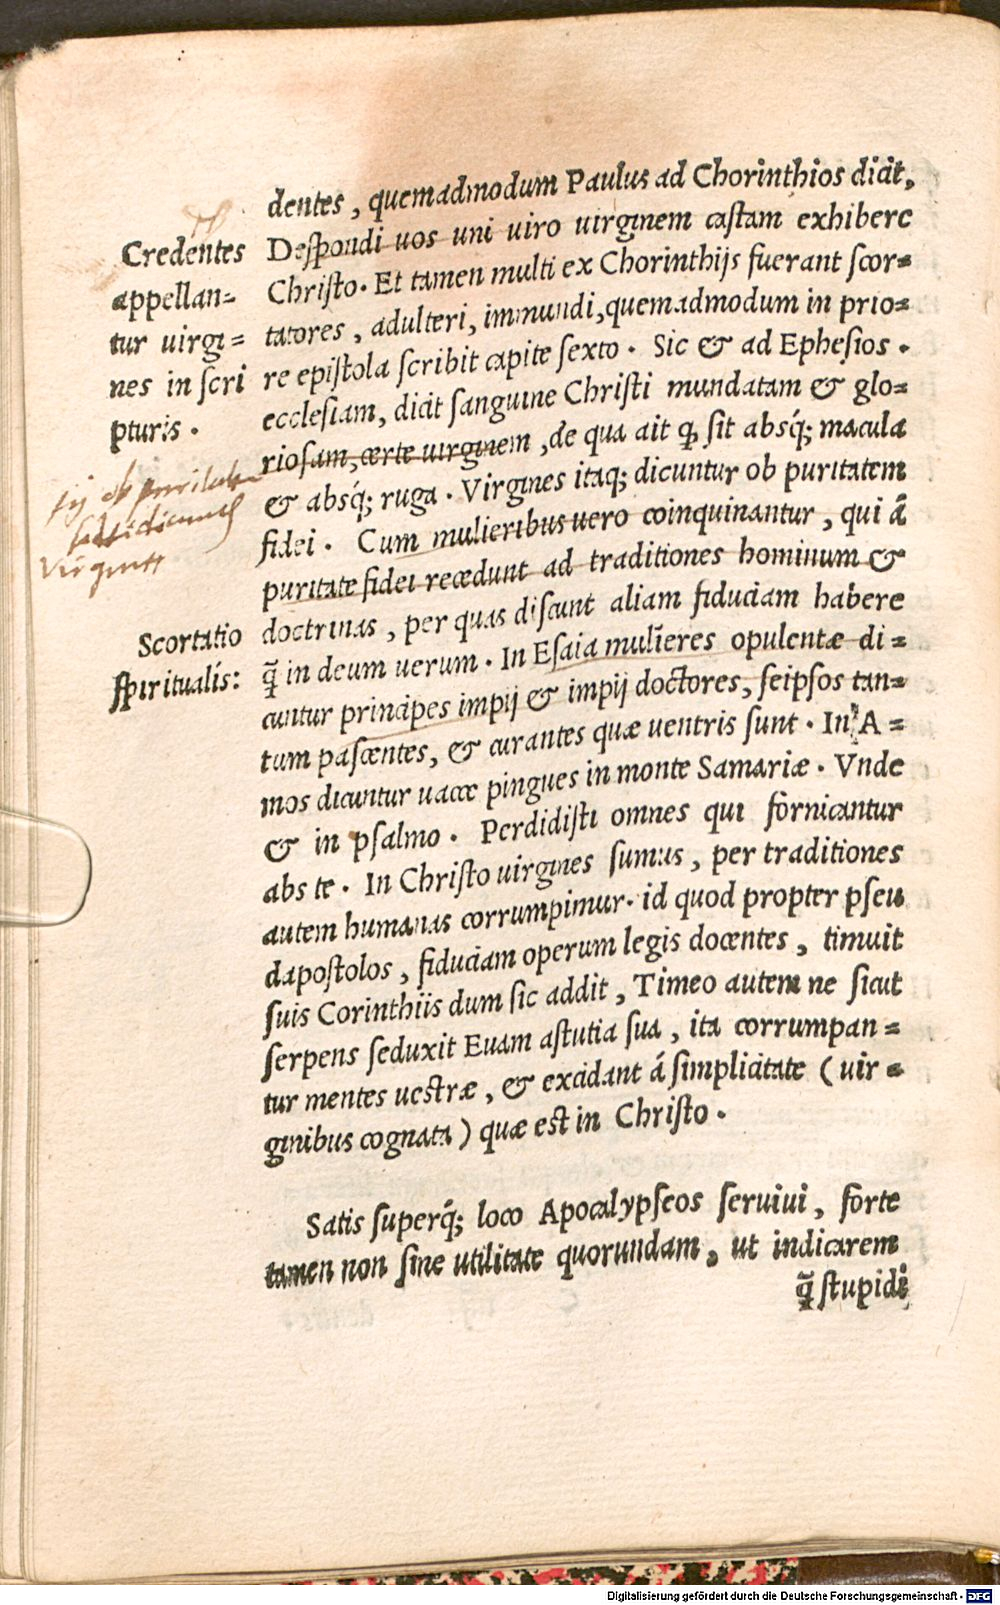 dentes, quemadmodum Paulus ad Chorinthios dicit,
Despondi uos uni uiro uirginem castam exhibere
Christo. Et tamen multi ex Chorinthijs fuerant scor=
tatores, adulteri, immundi, quemadmodum in prio=
re epistola scribit capite sexto. Sic & ad Ephesios.
ecclesiam, dicit sanguine Christi mundatam & glo=
riosam, certe uirginem, de qua ait ꝙ sit absq́; macula
& absq́; ruga. Virgines itaq; dicuntur ob puritatem
fidei. Cum mulieribus uero coinquinantur, qui á
puritate fidei recedunt ad traditiones hominum &
doctrinas, per quas discunt aliam fiduciam habere
q̃ in deum uerum. In Esaia mulieres opulentæ di=
cuntur principes impij & impij doctores, seipsos tan=
tum pascentes, & curantes quæ uentris sunt. In A=
mos dicuntur uaccæ pingues in monte Samariæ. Vnde
& in psalmo. Perdidisti omnes qui fornicantur
abs te. In Christo uirgines sumus, per traditiones
autem humanas corrumpimur. id quod propter pseu
dapostolos, fiduciam operum legis docentes, timuit
suis Corinthiis dum sic addit, Timeo autem ne sicut
serpens seduxit Euam astutia sua, ita corrumpan=
tur mentes uestræ, & excidant á simplicitate (uir=
ginibus cognata) quæ est in Christo.
Satis superq́; loco Apocalypseos seruiui, forte
tamen non sine utilitate quorundam, ut indicarem
q̃ stupidi
Credentes
appellan=
tur uirgi=
nes in scri
pturis.
ob puritate
fidei dicunt
Virgines
Scortatio
spiritualis:
Digitalisierung gefördert durch die Deutsche Forschungsgemeinschaft - DFG